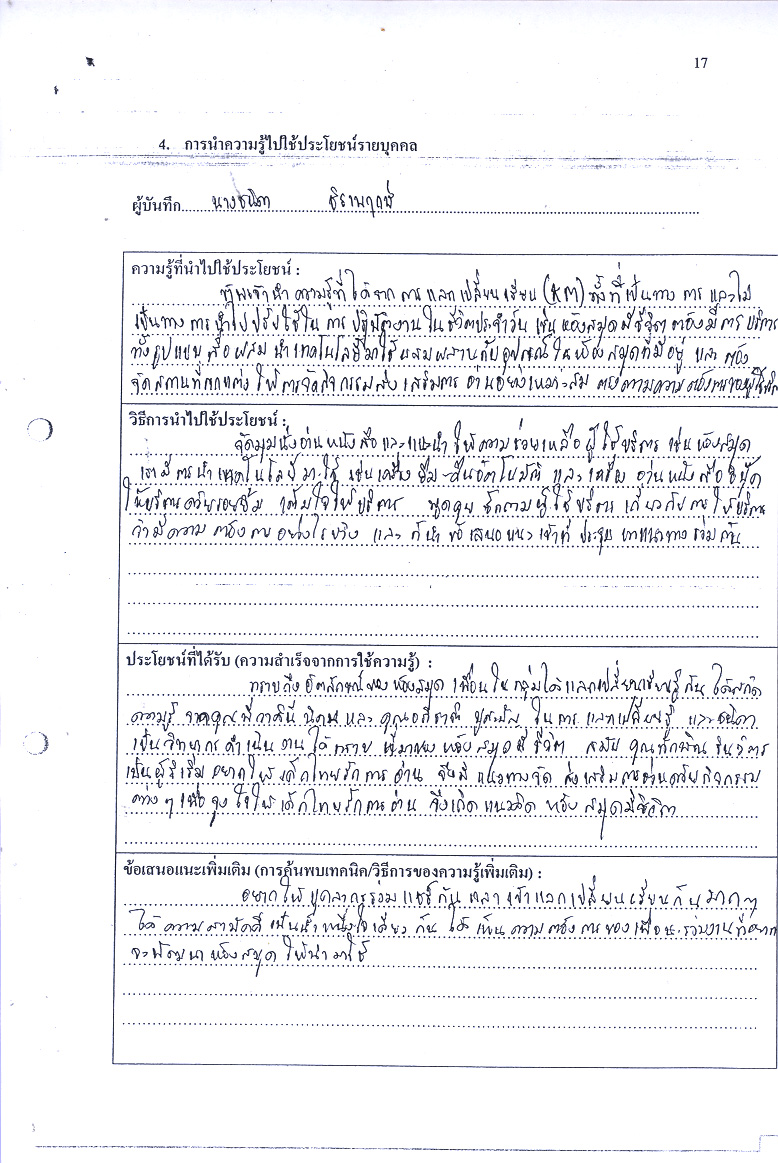 17
4. การนำความรู้ไปใช้ประโยชน์รายบุคคล
ผู้บันทึก นางชนิดา
ความรู้ที่นำไปใช้ประโยชน์ :
ข้าพเจ้านำ ความรู้ที่ ได้จาก การ แลกเปลี่ยนเรียน (KM) ทั้งที่เป็นทางการ และไม่
เป็นทางการ นำไป ปรับใช้ใน การ ปฏิบัติงาน ในชีวิตประจำวัน เช่น ห้องสมุดมีชีวิต ต้องมีการ บริการ
ทั้งรูปแบบ สื่อผสม นำเทคโนโลยีมาใช้ผสมผสานกับอุปกรณ์ในห้องสมุดที่มีอยู่ และ ต้อง
จัดสถานที่ตกแต่ง ให้การจัดกิจกรรมส่งเสริมการ อ่านอย่างเหมาะสม
วิธีการนำไปใช้ประโยชน์ :
จัดมุมนั่งอ่านหนังสือ และแนะนำ ให้ความช่วยเหลือ ผู้ใช้บริการ เช่น ห้องสมุด
เรามีการนำเทคโนโลยีมาใช้ เช่น เครื่อง ยืม-คืนอัตโนมัติ และ เครื่อง อ่านหนังสือ
ให้บริการด้วยรอยยิ้ม เต็มใจให้บริการ พูดคุย ซักถามผู้ใช้บริการ เกี่ยวกับการ ให้บริการ
ว่ามีความ ต้องการอย่างไรบ้าง และ ก็นำ ข้อเสนอแนะ เข้าที่ ประชุม หาแนวทางร่วมกัน
ประโยชน์ที่ได้รับ (ความสำเร็จจากการใช้ความรู้) :
ทราบถึง อัตลักษณ์ของ ห้องสมุด เพื่อนในกลุ่มได้แลกเปลี่ยนเรียนรู้กัน ได้สกัด
ความรู้ จากคุณ และ ในการ แลกเปลี่ยนรู้ และชนิดา
เป็นวิทยากรดำเนินงาน ได้ทราบ ที่มาของ ห้องสมุดมีชีวิต สมัย คุณ
เป็นผู้ริเริ่ม อยากให้เด็กไทยรักการอ่าน จึงมี แนวทางจัด ส่งเสริมการอ่านด้วยกิจกรรม
ต่าง ๆ เพื่อจูงใจให้เด็กไทยรักการอ่าน จึงเกิดแนวคิด ห้องสมุดมีชีวิต
ข้อเสนอแนะเพิ่มเติม (การค้นพบเทคนิค/วิธีการของความรู้เพิ่มเติม) :
อยากให้ บุคลากรร่วม แชร์กัน แลกเปลี่ยนเรียนกันมากๆ
ได้ ความสามัคคี เป็นน้ำหนึ่งใจเดียว กัน ได้ เห็นความ ต้องการ ของเพื่อนร่วมงานที่อยาก
จะพัฒนาห้องสมุด ให้น่ามาใช้